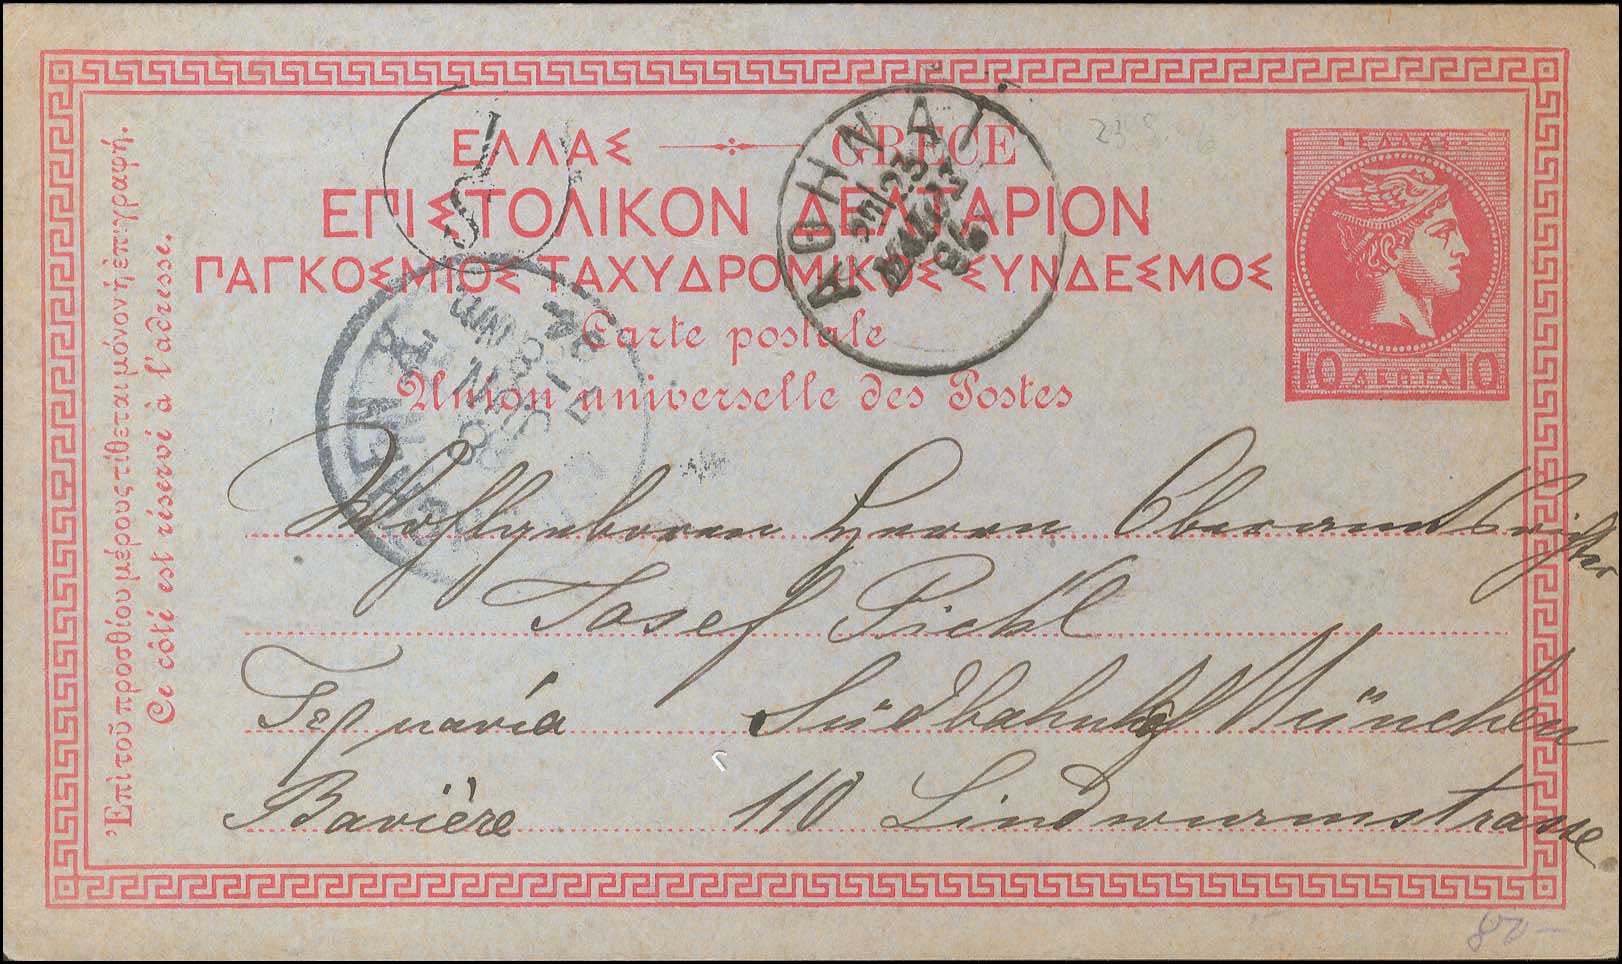 ΕΛΛΑΣ GRÈCE
ΕΠΙΣΤΟΛΙΚΟΝ ΔΕΛΤΑΡΙΟΝ
ΠΑΓΚΟΣΜΙΟΣ ΤΑΧΥΔΡΟΜΙΚΟΣ ΣΥΝΔΕΣΜΟΣ
Carte postale
Union universelle des Postes
Ἐπὶ τοῦ προσθίου μέρους τίθεται μόνον ἡ ἐπιγραφή.
Ce côté est réservé à l'adresse.
ΕΛΛΑΣ
10 ΛΕΠΤΑ 10
ΑΘΗΝΑΙ
23
Wohlgeboren Herrn Oberamtsrichter
Josef Pickl
Γερμανία Südbahnhof München
Bavière 110 Lindwurmstrasse
80-